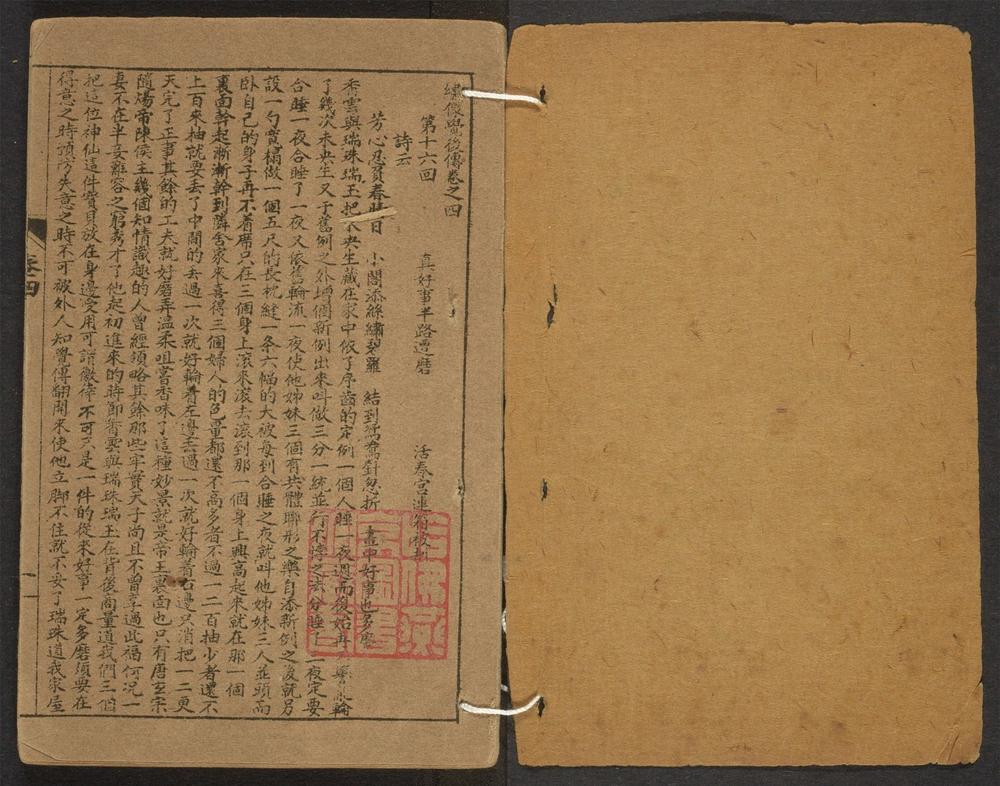 繡像覺後傳卷之四
第十六回　真好事半路遭磨　活春宮連箱被
詩云
芳心忍負春時日　小閣添絲繡碧羅　結到鴛鴦對忽折　畫中好事也多磨
香雲與瑞珠瑞玉把未央生藏在家中依了序齒的定例一個人睡一夜週而復始再輪
了幾次未央生又于舊例之外增個新例出來叫做三分一統並行不悖之法分睡了一夜定要
合睡一夜合睡了一夜又依舊輪流一夜使他姊妹三個有共體聯形之樂自添新例之後就另
設一勺寬榻做一個五尺的長枕縫一条六幅的大被每到合睡之夜就叫他姊妹三人並頭而
卧自己的身子再不着席只在三個身上滾來滾去滾到那一個身上興高起來就在那一個
裏面幹起漸漸幹到隣舍家來喜得三個婦人的色量都還不高多者不過一二百抽少者還不
上百來抽就要丟了中間的丟過一次就好輪着左邊丟過一次就好輪着右邊只消把一二更
天完了正事其餘的工夫就好磨弄溫柔咀嘗香味了這種妙景就是帝王裏面也只有唐玄宗
隨煬帝陳侯主幾個知情識趣的人曾經領略其餘那些牢實天子尚且不曾享過此福何况一
妻不在半妾難容之窮秀才了他起初進來的時節香雲與瑞珠瑞玉在背後商量道我們三個
把這位神仙這件寶貝放在身邊受用可謂徼倖不可只是一件的從來好事一定多磨須要在
得意之時預防失意之時不可被外人知覺傳翻開來使他立脚不住就不妥了瑞珠道我家屋
卷四
一